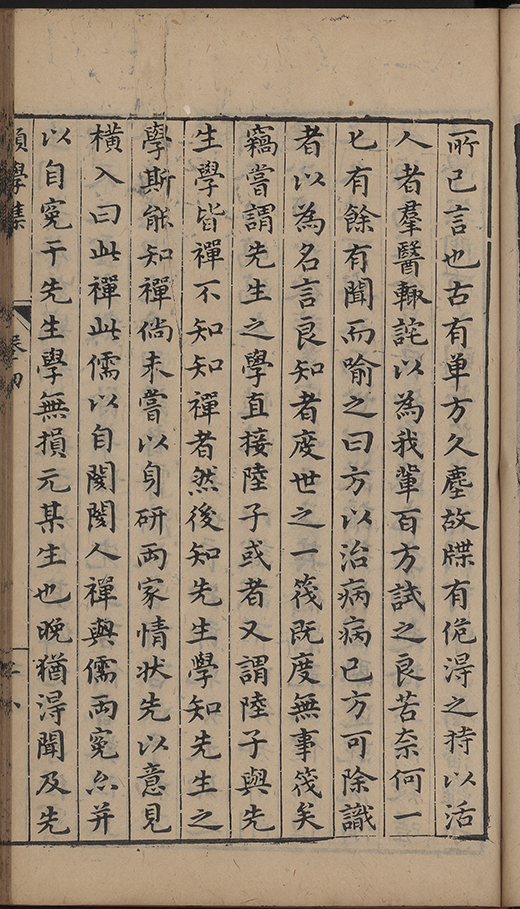 所已言也古有单方久塵故牒有佹淂之持以活
人者羣醫輙詫以為我輩百方試之良苦奈何一
匕有餘有聞而喻之曰方以治病病已方可除識
者以為名言良知者度世之一筏既度無事筏矣
竊嘗謂先生之學直接陸子或者又謂陸子與先
生學皆禪不知知禪者然後知先生學知先生之
學斯能知禪倘未嘗以身研兩家情状先以意見
橫入曰此禪此儒以自閡閡人禪與儒兩寃亦并
以自寃干先生學無損元某生也晚猶淂聞及先
學集 卷四